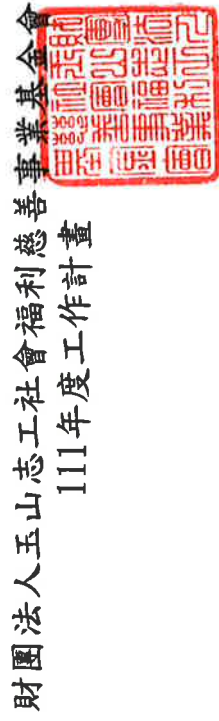 財團法人玉山志工社會福利慈善事業基金會
111年度工作計畫